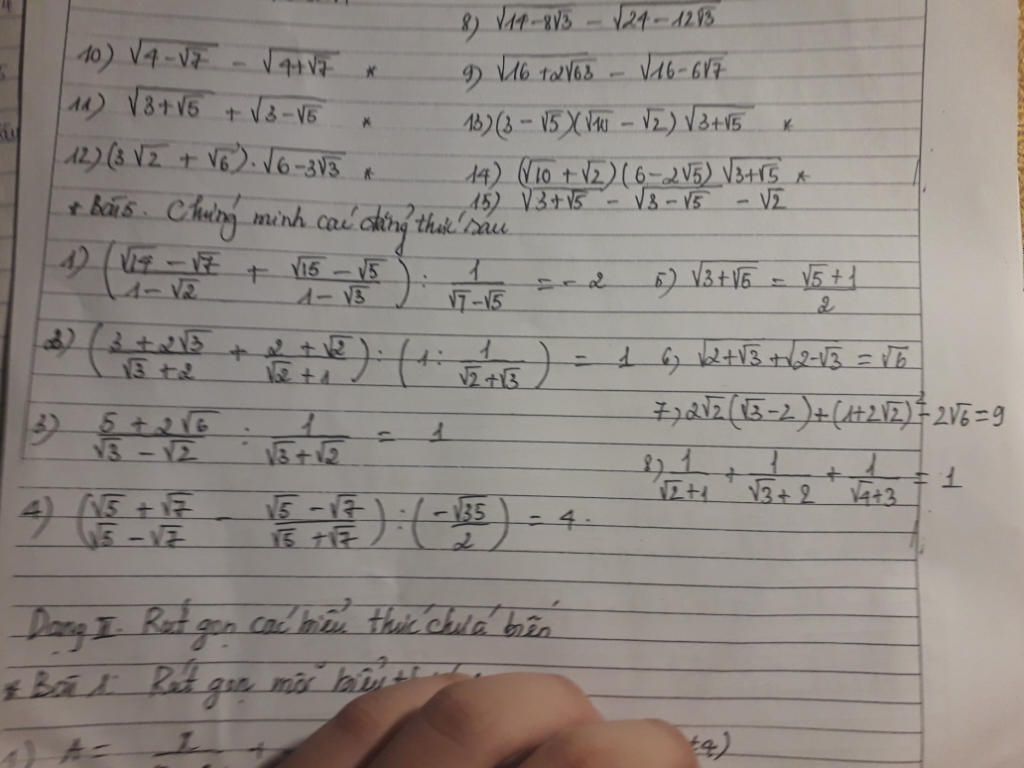 8) √14-8√3 - √24-12√3
10) √4-√7 - √4+√7 *
9) √16+2√63 - √16-6√7
11) √3+√5 + √3-√5 *
13) (3-√5)(√10-√2)√3+√5 *
12) (3√2+√6).√6-3√3 *
14) (√10+√2)(6-2√5)√3+√5 *
15) √3+√5 - √3-√5 - √2
* Bài 5. Chứng minh các đẳng thức sau
1) ((√14-√7)/(1-√2) + (√15-√5)/(1-√3)) : 1/(√7-√5) = -2
5) √3+√5 = (√5+1)/2
2) ((3+2√3)/(√3+2) + (2+√2)/(√2+1)) : (1: 1/(√2+√3)) = 1
6) √2+√3 + √2-√3 = √6
7) 2√2(√3-2)+(1+2√2)²-2√6=9
3) (5+2√6)/(√3-√2) : 1/(√3+√2) = 1
8) 1/(√2+1) + 1/(√3+2) + 1/(√4+3) = 1
4) ((√5+√7)/(√5-√7) - (√5-√7)/(√5+√7)) : (-√35/2) = 4.
Dạng II. Rút gọn các biểu thức chứa biến
* Bài 1: Rút gọn mỗi biểu
1) A=
+4)